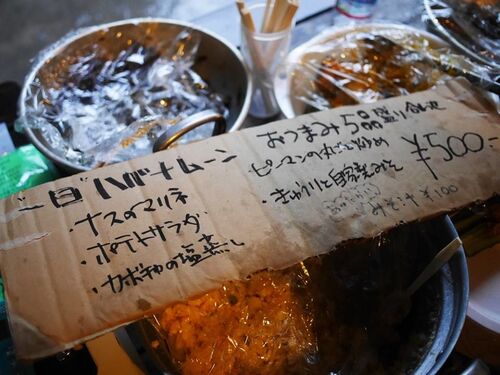 二日目 ハバナムーン
・ナスのマリネ
・ポテトサラダ
・カボチャの塩蒸し
おつまみ5品盛り合わせ
・ピーマンの丸ごと炒め
・きゅうりと自家製みそ
¥500
みそ汁 ¥100